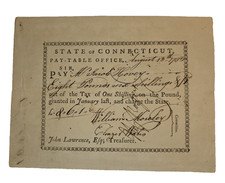 STATE OF CONNECTICUT.
PAY-TABLE OFFICE, August 13th 178
SIR,
PAY Mr Jacob Hovey
Eight Pounds one Shillings &
out of the TAX of One Shilling on the Pound,
granted in January last, and charge the State.
£8
William Moseley
John Lawrence, Esq; Treasurer.